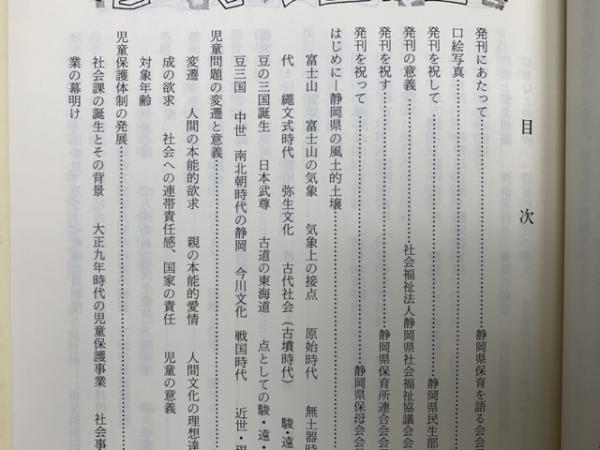 目次
発刊にあたって……静岡県保育を語る会会
口絵写真……
発刊を祝して……静岡県民生部
発刊の意義……社会福祉法人静岡県社会福祉協議会会
発刊を祝す……静岡県保育所連合会会
発刊を祝って……静岡県保母会会
はじめに―静岡県の風土的土壌
富士山 富士山の気象 気象上の接点 原始時代 無土器時
代 縄文式時代 弥生文化 古代社会(古墳時代) 駿・遠・
豆の三国誕生 日本武尊 古道の東海道 点としての駿・遠・
豆三国 中世 南北朝時代の静岡 今川文化 戦国時代 近世・現
児童問題の変遷と意義……
変遷 人間の本能的欲求 親の本能的愛情 人間文化の理想達
成の欲求 社会への連帯責任感、国家の責任 児童の意義
対象年齢
児童保護体制の発展……
社会課の誕生とその背景 大正九年時代の児童保護事業 社会事
業の幕明け